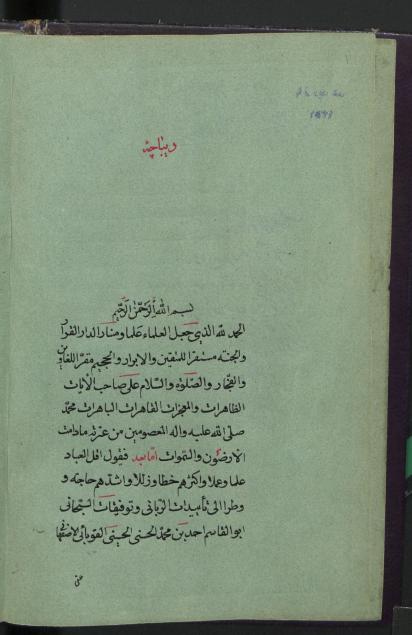 دیباچه
بسم الله الرحمن الرحیم
الحمد لله الذی جعل العلماء علما و منارا لدار القرار
والجنة مستقرا للمتقین والابرار والجحیم مقرا للغاوین
والفجار والصلوة والسلام علی صاحب الآیات
الظاهرات والمعجزات القاهرات الباهرات محمد
صلی الله علیه واله المعصومین من عترته مادامت
الارضون والسموات اما بعد فیقول اقل العباد
علما وعملا واکثرهم خطا وزللا واشدهم حاجة و
وطرا الی تأییدات الربانی وتوفیقات السبحانی
ابوالقاسم احمد بن محمد الحسنی الحسینی القوبائی الاصفهانی